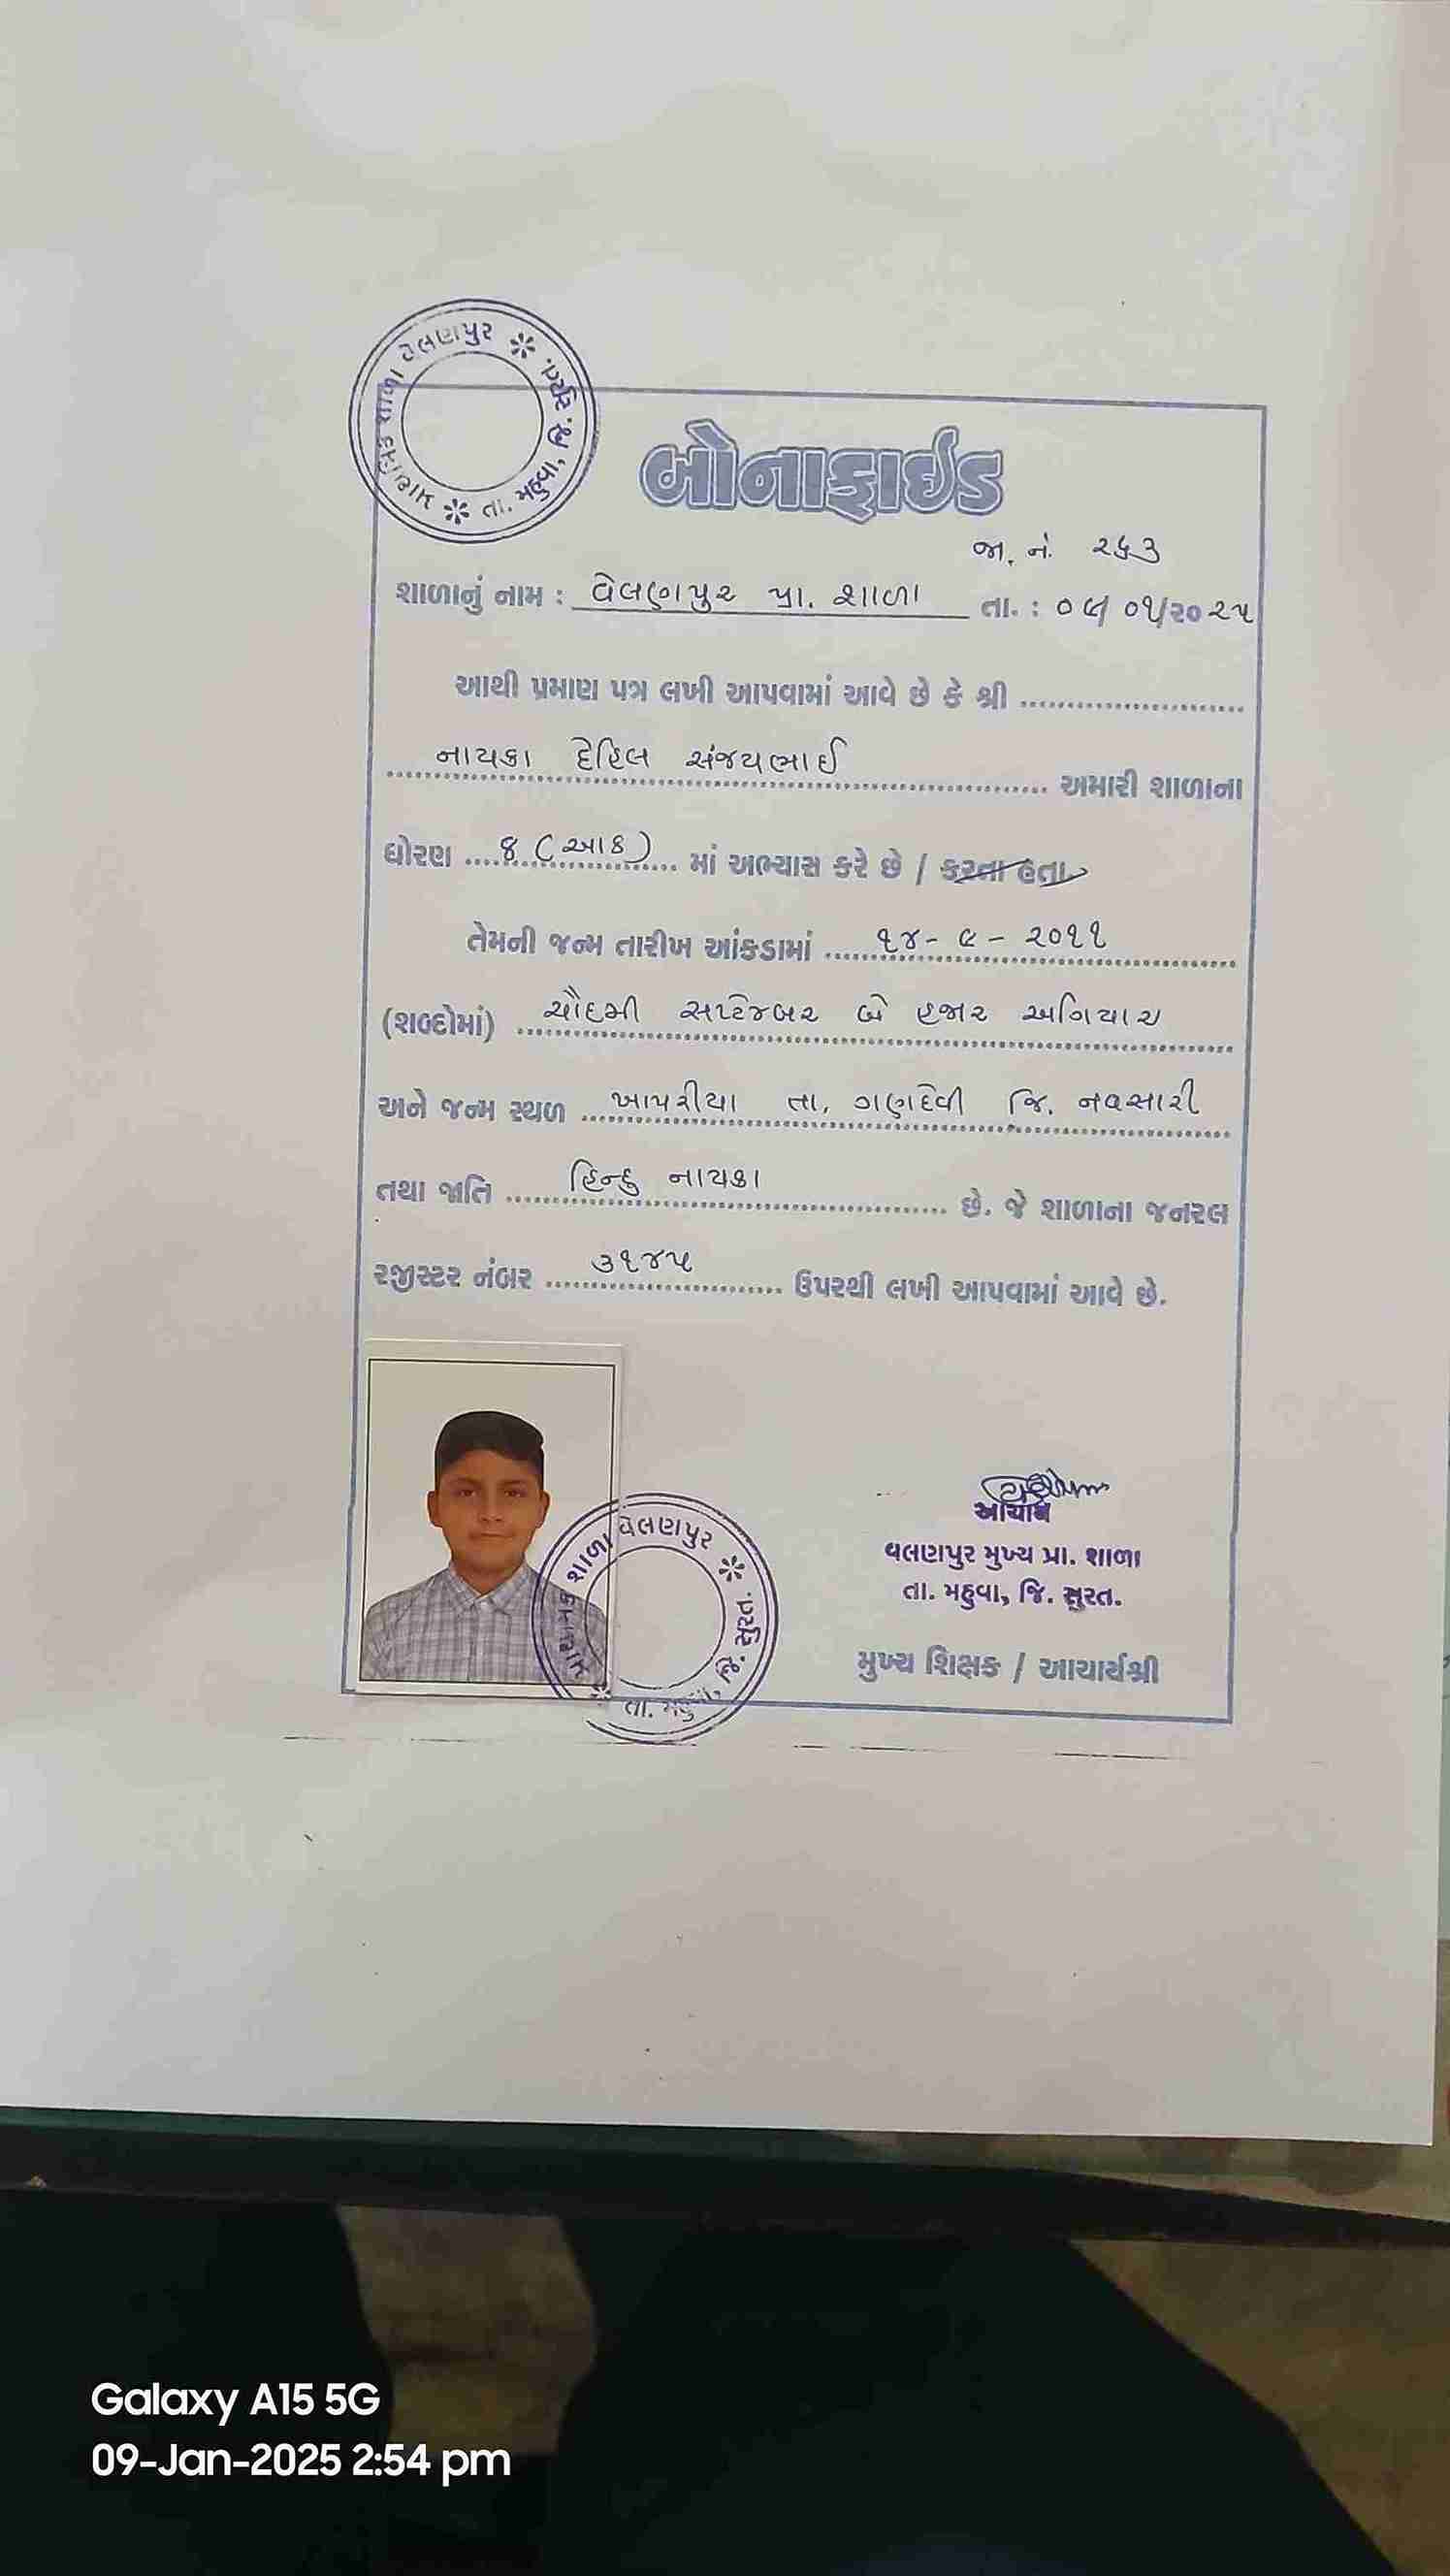 પ્રાથમિક શાળા વેલણપુર * તા. મહુવા, જિ. સુરત. *
બોનાફાઈડ
જા. નં. ૨૬૩
શાળાનું નામ : વેલણપુર પ્રા. શાળા તા. : ૦૯/૦૧/૨૦૨૫
આથી પ્રમાણ પત્ર લખી આપવામાં આવે છે કે શ્રી
નાયકા દેહિલ સંજયભાઈ અમારી શાળાના
ધોરણ ૮ (આઠ) માં અભ્યાસ કરે છે / કરતા હતા
તેમની જન્મ તારીખ આંકડામાં ૧૪-૯-૨૦૧૧
(શબ્દોમાં) ચૌદમી સપ્ટેમ્બર બે હજાર અગિયાર
અને જન્મ સ્થળ ખાપરીયા તા. ગણદેવી જિ. નવસારી
તથા જાતિ હિન્દુ નાયકા છે. જે શાળાના જનરલ
રજીસ્ટર નંબર ૩૧૪૫ ઉપરથી લખી આપવામાં આવે છે.
પ્રાથમિક શાળા વેલણપુર * તા. મહુવા, જિ. સુરત. *
આચાર્ય
વલણપુર મુખ્ય પ્રા. શાળા
તા. મહુવા, જિ. સુરત.
મુખ્ય શિક્ષક / આચાર્યશ્રી
Galaxy A15 5G
09-Jan-2025 2:54 pm